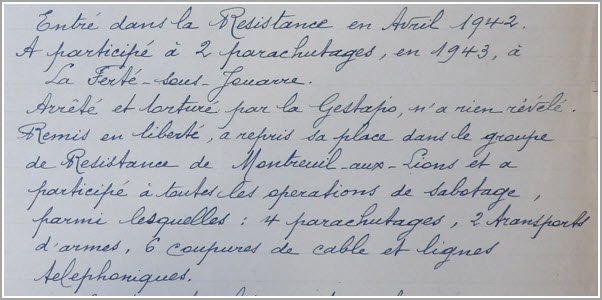 Entré dans la Resistance en Avril 1942.
A participé à 2 parachutages, en 1943, à
La Ferté-sous-Jouarre.
Arrêté et torturé par la Gestapo, n'a rien révélé.
Remis en liberté, a repris sa place dans le groupe
de Resistance de Montreuil-aux-Lions et a
participé à toutes les operations de sabotage,
parmi lesquelles : 4 parachutages, 2 transports
d'armes, 6 coupures de cable et lignes
telephoniques.